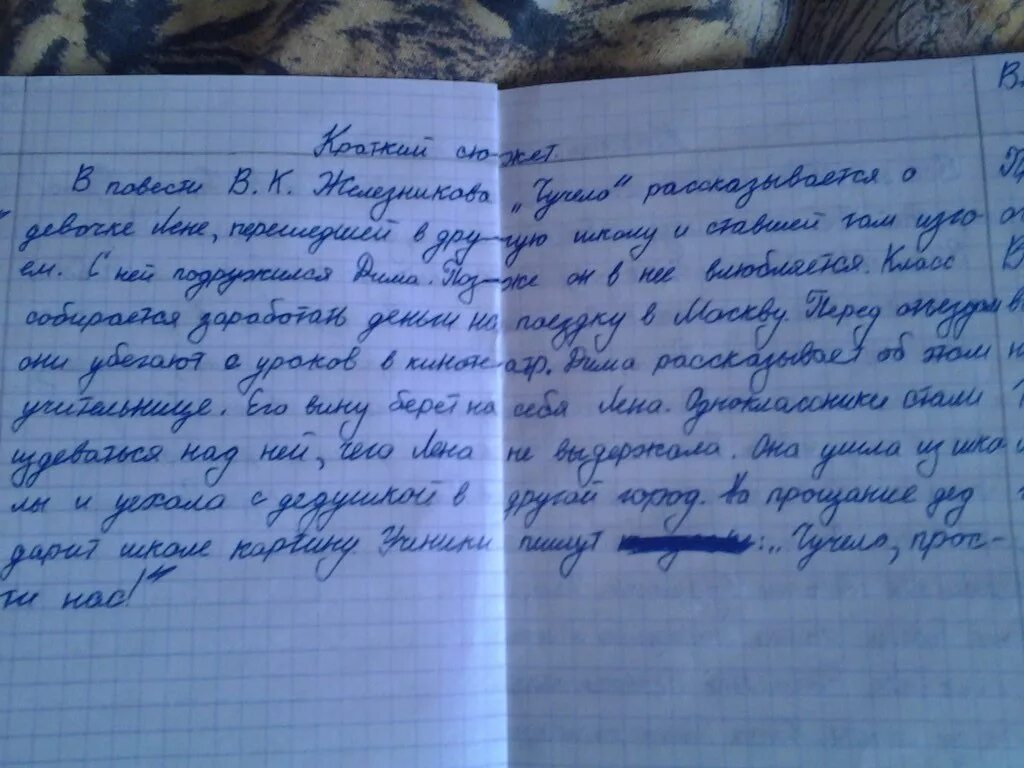 Краткий сюжет.
В повести В. К. Железникова „Чучело" рассказывается о
девочке Лене, перешедшей в другую школу и ставшей там изго-
ем. С ней подружился Дима. Позже он в нее влюбляется. Класс
собирается заработать деньги на поездку в Москву. Перед отъездом
они убегают с уроков в кинотеатр. Дима рассказывает об этом
учительнице. Его вину берет на себя Лена. Одноклассники стали
издеваться над ней, чего Лена не выдержала. Она ушла из шко
лы и уехала с дедушкой в другой город. На прощание дед
дарит школе картину. Ученики пишут : „Чучело, прос-
ти нас!"